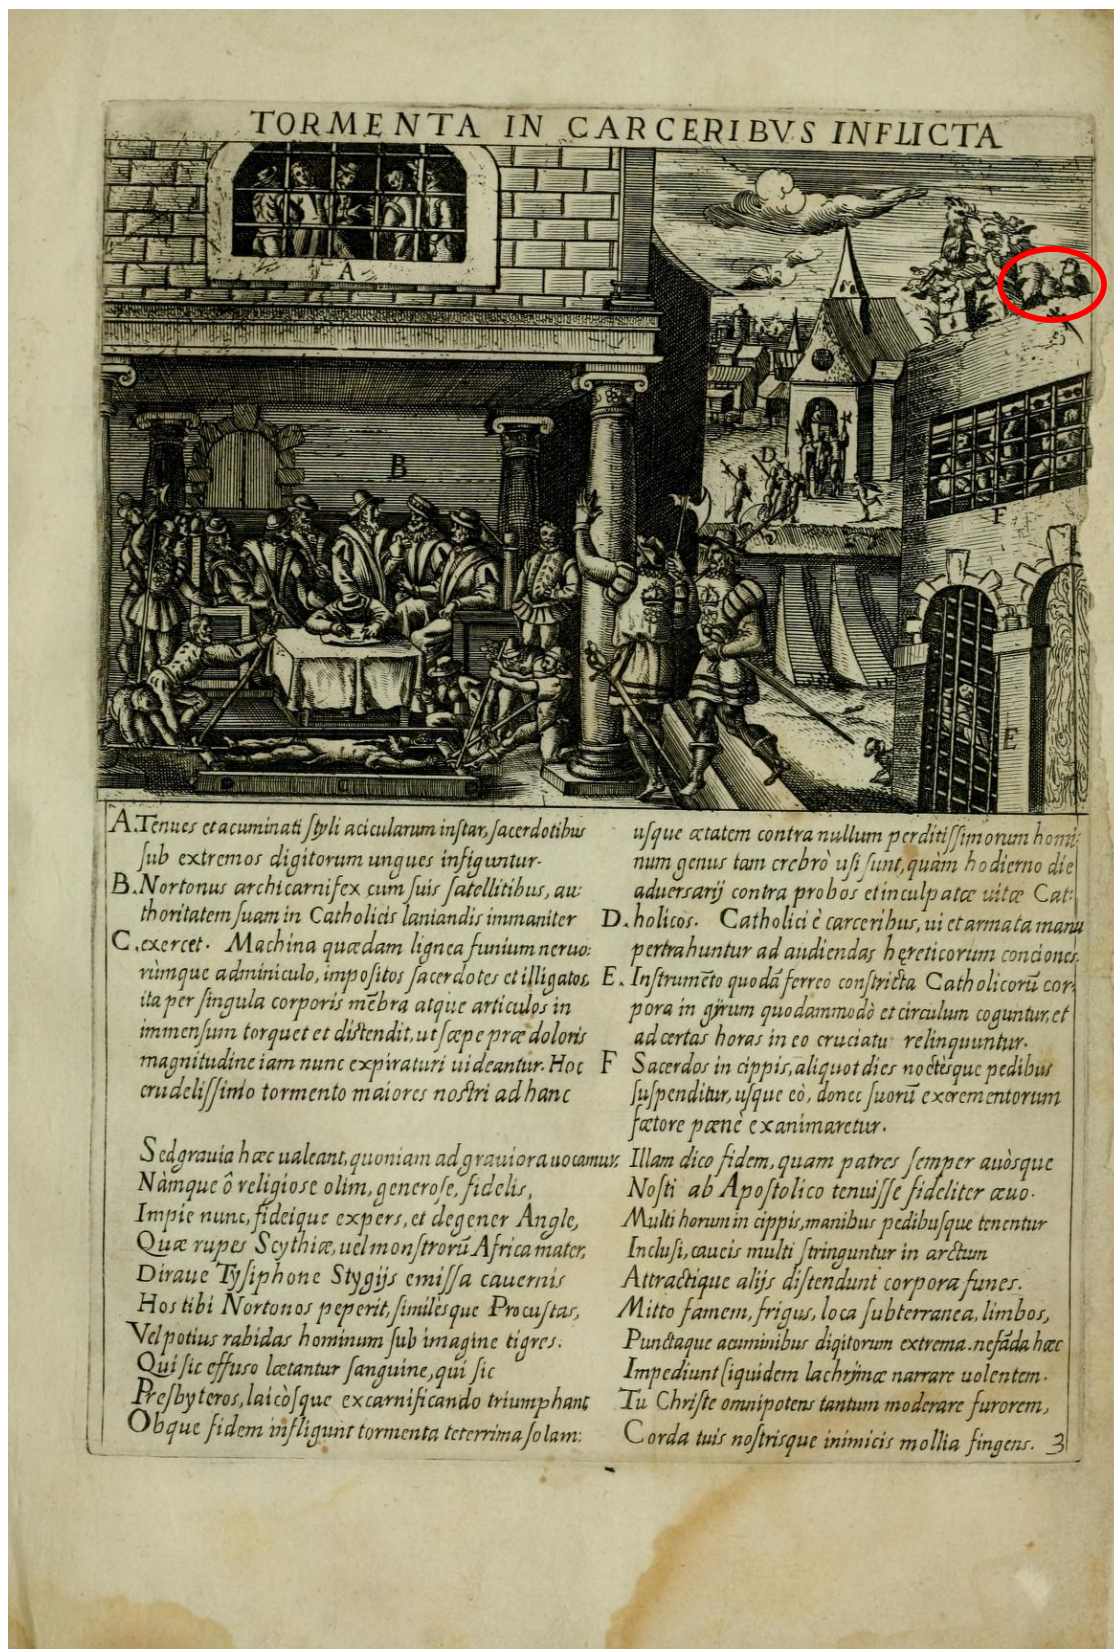 TORMENTA IN CARCERIBVS INFLICTA
A
B
D
F
E
C
A. Tenues et acuminati ſtyli acicularum inſtar, ſacerdotibus
ſub extremos digitorum ungues infiguntur.
B. Nortonus archicarnifex cum ſuis ſatellitibus, au:
thoritatem ſuam in Catholicis laniandis immaniter
C. exercet. Machina quædam lignea funium neruo:
rùmque adminiculo, impoſitos ſacerdotes et illigatos,
ita per ſingula corporis mẽbra atque articulos in
immenſum torquet et diſtendit, ut ſæpe præ doloris
magnitudine iam nunc expiraturi uideantur. Hoc
crudeliſſimo tormento maiores noſtri ad hanc
uſque ætatem contra nullum perditiſſimorum homi:
num genus tam crebrò uſi ſunt, quàm hodierno die
aduerſarij contra probos et inculpatæ uitæ Cat:
D. holicos. Catholici è carceribus, ui et armata manu
pertrahuntur ad audiendas hęreticorum conciones.
E. Inſtrumẽto quodã ferreo conſtricta Catholicorũ cor:
pora in gÿrum quodammodò et circulum coguntur, et
ad certas horas in eo cruciatu relinquuntur.
F Sacerdos in cippis, aliquot dies noctèsque pedibus
ſuſpenditur, uſque eò, donec ſuorũ excrementorum
fœtore pœnè exanimaretur.
Sed grauia hæc ualeant, quoniam ad grauiora uocamur,
Nàmque ô religioſe olim, generoſe, fidelis,
Impie nunc, fideique expers, et degener Angle,
Quæ rupes Scythiæ, uel monſtrorũ Africa mater,
Diraue Tyſiphone Stygijs emiſſa cauernis
Hos tibi Nortonos peperit, ſimilèsque Procuſtas,
Vel potius rabidas hominum ſub imagine tigres.
Qui ſic effuſo lætantur ſanguine, qui ſic
Preſbyteros, laicòſque excarnificando triumphant
Obque fidem infligunt tormenta teterrima ſolam:
Illam dico fidem, quam patres ſemper auòsque
Noſti ab Apoſtolico tenuiſſe fideliter æuo.
Multi horum in cippis, manibus pedibuſque tenentur
Incluſi, caueis multi ſtringuntur in arctum
Attractique alijs diſtendunt corpora funes.
Mitto famem, frigus, loca ſubterranea, limbos,
Punctaque acuminibus digitorum extrema. nefãda hæc
Impediunt ſiquidem lachrÿmæ narrare uolentem.
Tu Chriſte omnipotens tantum moderare furorem,
Corda tuis noſtrisque inimicis mollia fingens. 3